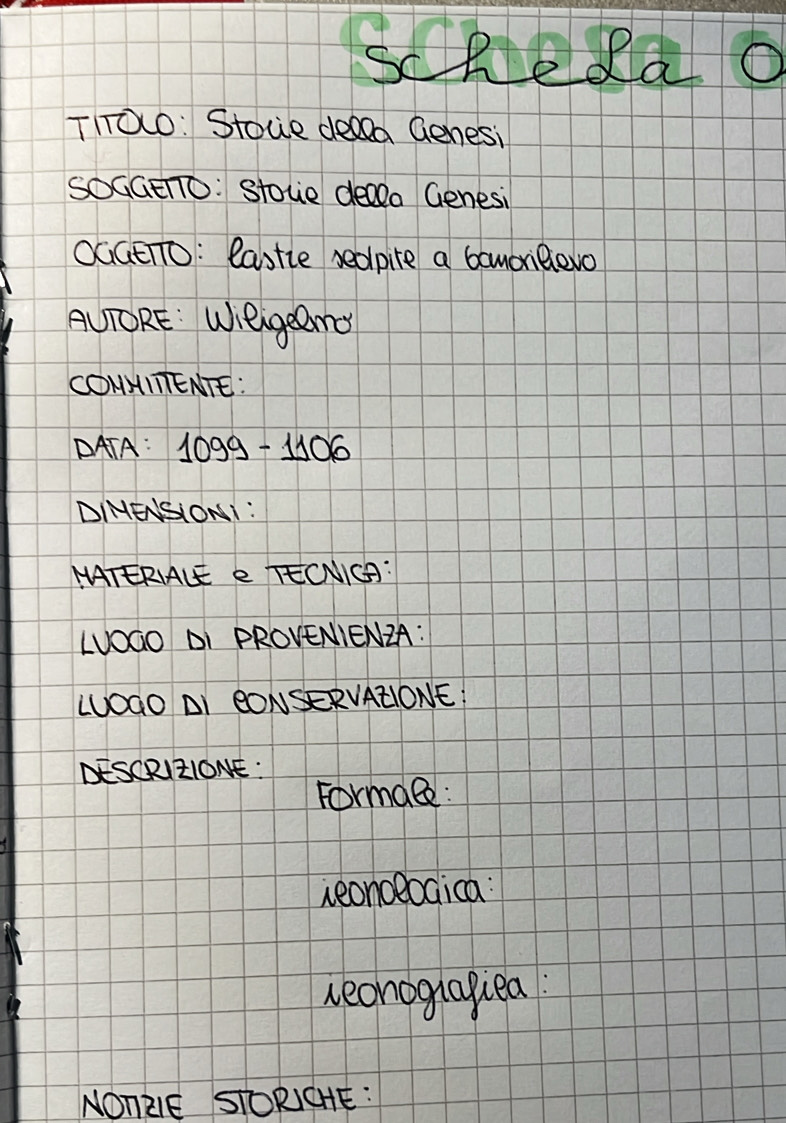 Scheda O
TITOLO: Storie della Genesi
SOGGETTO: Storie della Genesi
OGGETTO: lastre scolpite a bassorilievo
AUTORE: Wiligelmo
COMMITTENTE:
DATA: 1099-1106
DIMENSIONI:
MATERIALE e TECNICA:
LUOGO DI PROVENIENZA:
LUOGO DI CONSERVAZIONE:
DESCRIZIONE:
Formale:
iconologica:
iconografica:
NOTIZIE STORICHE: